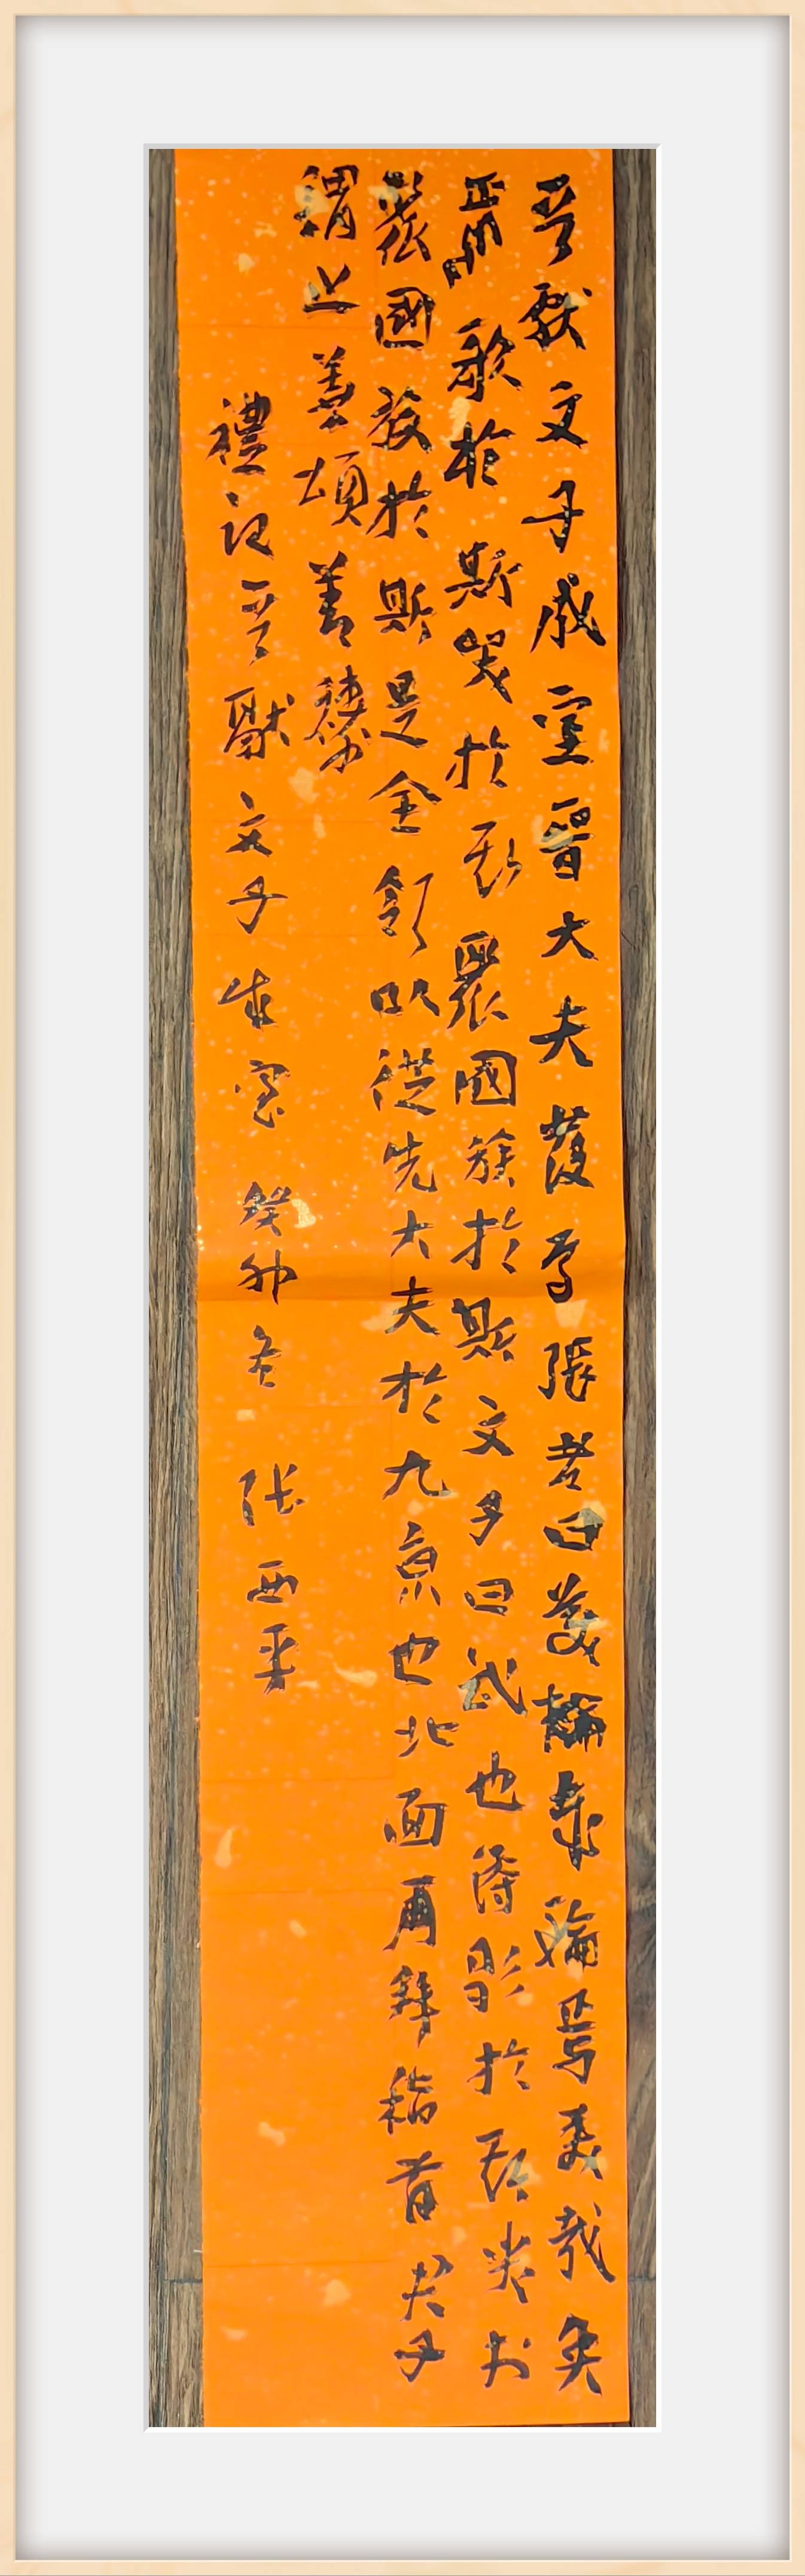 晉獻文子成室晉大夫發焉張老曰美哉輪焉美哉奐
焉歌於斯哭於斯聚國族於斯文子曰武也得歌於斯哭於
聚國族於斯是全領以從先大夫於九京也北面再拜稽首君子
謂之善頌善禱
禮記晉獻文子成室 癸卯冬 张西